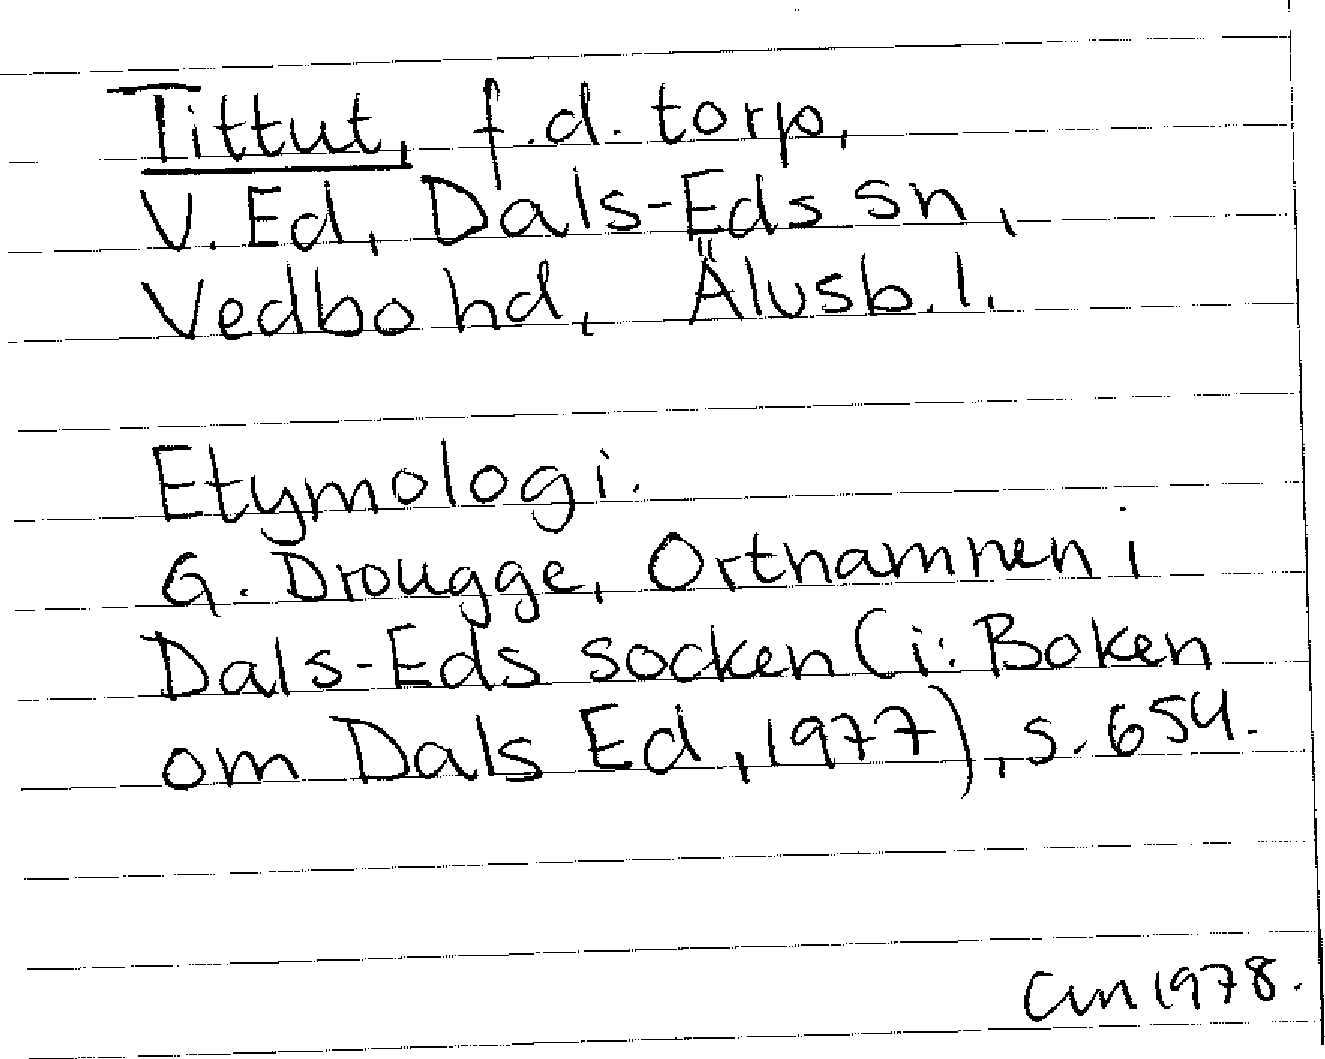 Tittut, f.d. torp,
V. Ed, Dals-Eds sn,
Vedbo hd, Älvsb. l.
Etymologi.
G. Drougge, Ortnamnen i
Dals-Eds socken (i: Boken
om Dals Ed, 1977), s. 654.
1978.